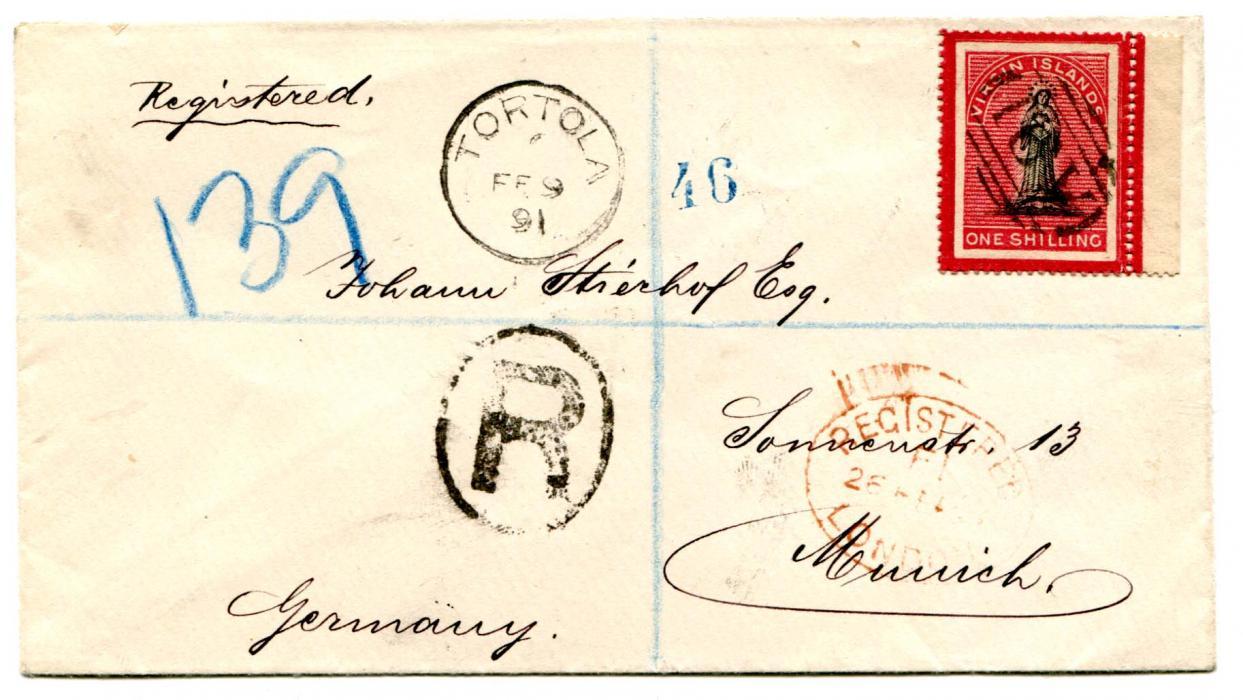 Registered.
139
TORTOLA
FE 9
91
46
VIRGIN ISLANDS
ONE SHILLING
Johann Stierhof Esq.
R
REGISTERED
26 FE
LONDON
Sonnenstr. 13
Munich.
Germany.